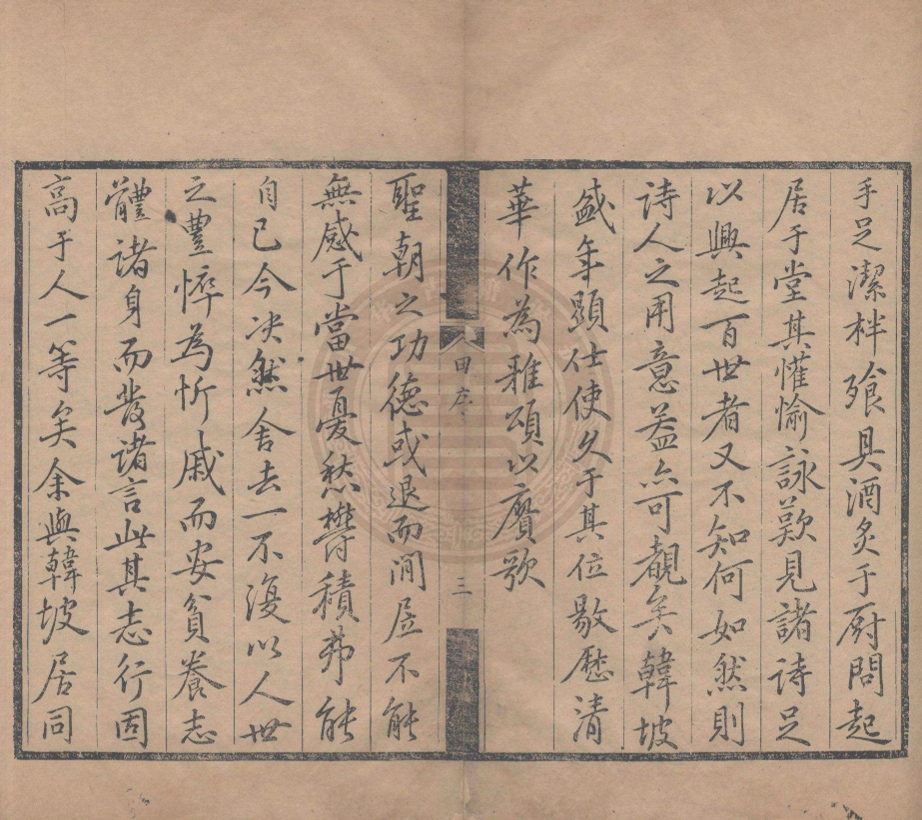 手足潔柈飱具酒炙于厨問起
居于堂其懽愉詠歎見諸诗足
以興起百世者又不知何如然則
诗人之用意益亦可覩矣韓坡
盛年顕仕使久于其位敭歴清
華作為雅頌以賡歌
田序
三
聖朝之功徳或退而澗居不能
無感于當世憂愁欝積弗能
自已今决然舍去一不復以人世
之豐悴為忻戚而安貧養志
體諸身而發諸言此其志行固
高于人一等矣余與韓坡居同